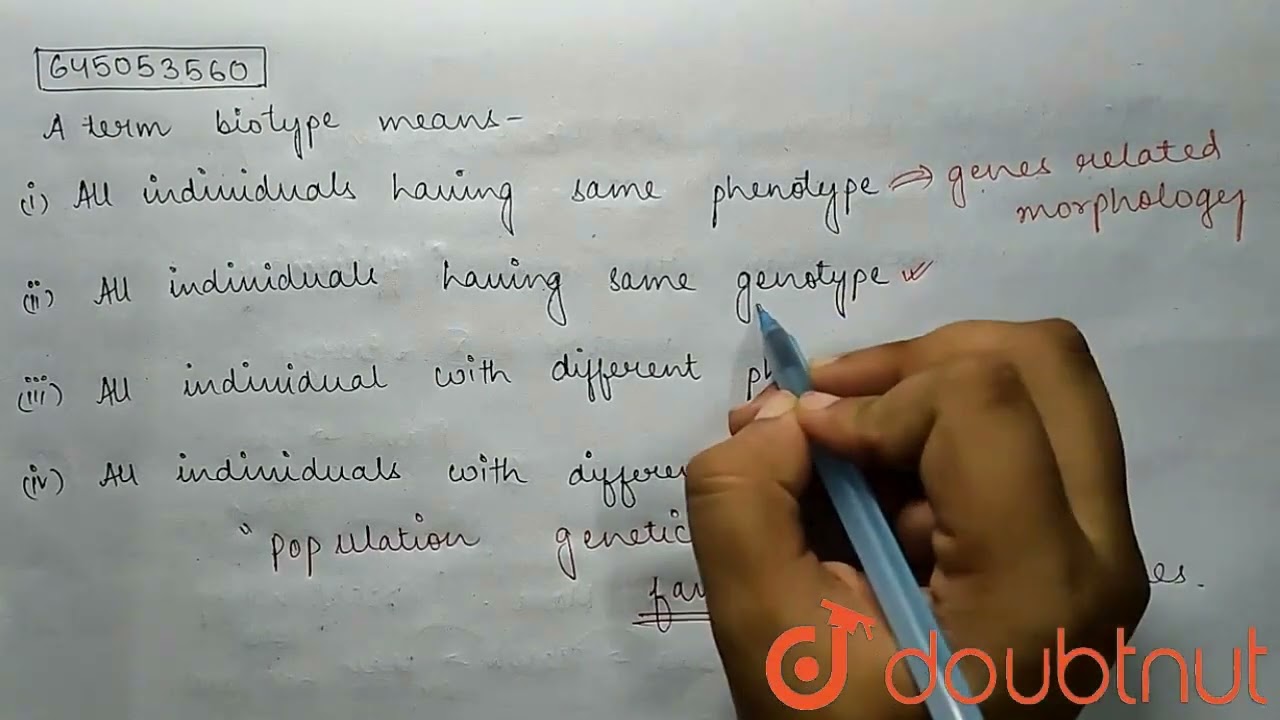 645053560
A term biotype means-
(i) All individuals having same phenotype ⇒ genes related
morphology
(ii) All individuals having same genotype ✓
(iii) All individual with different
(iv) All individuals with
"population
doubtnut